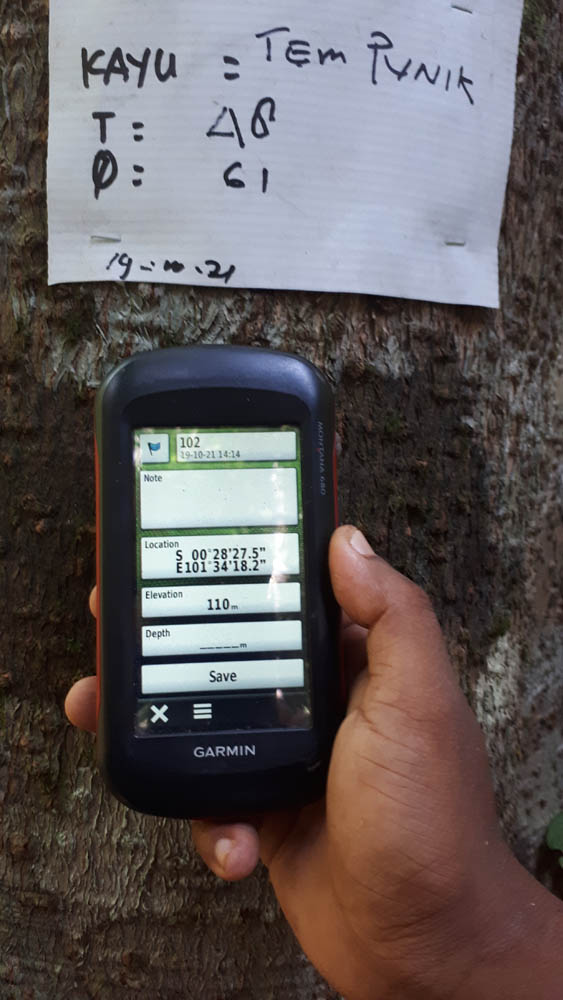 KAYU = TEMPUNIK
T = 48
Ø = 61
19-10-21
MONTANA 680
102
19-10-21 14:14
Note
Location
S 00°28'27.5"
E101°34'18.2"
Elevation
110 m
Depth
_____m
Save
GARMIN